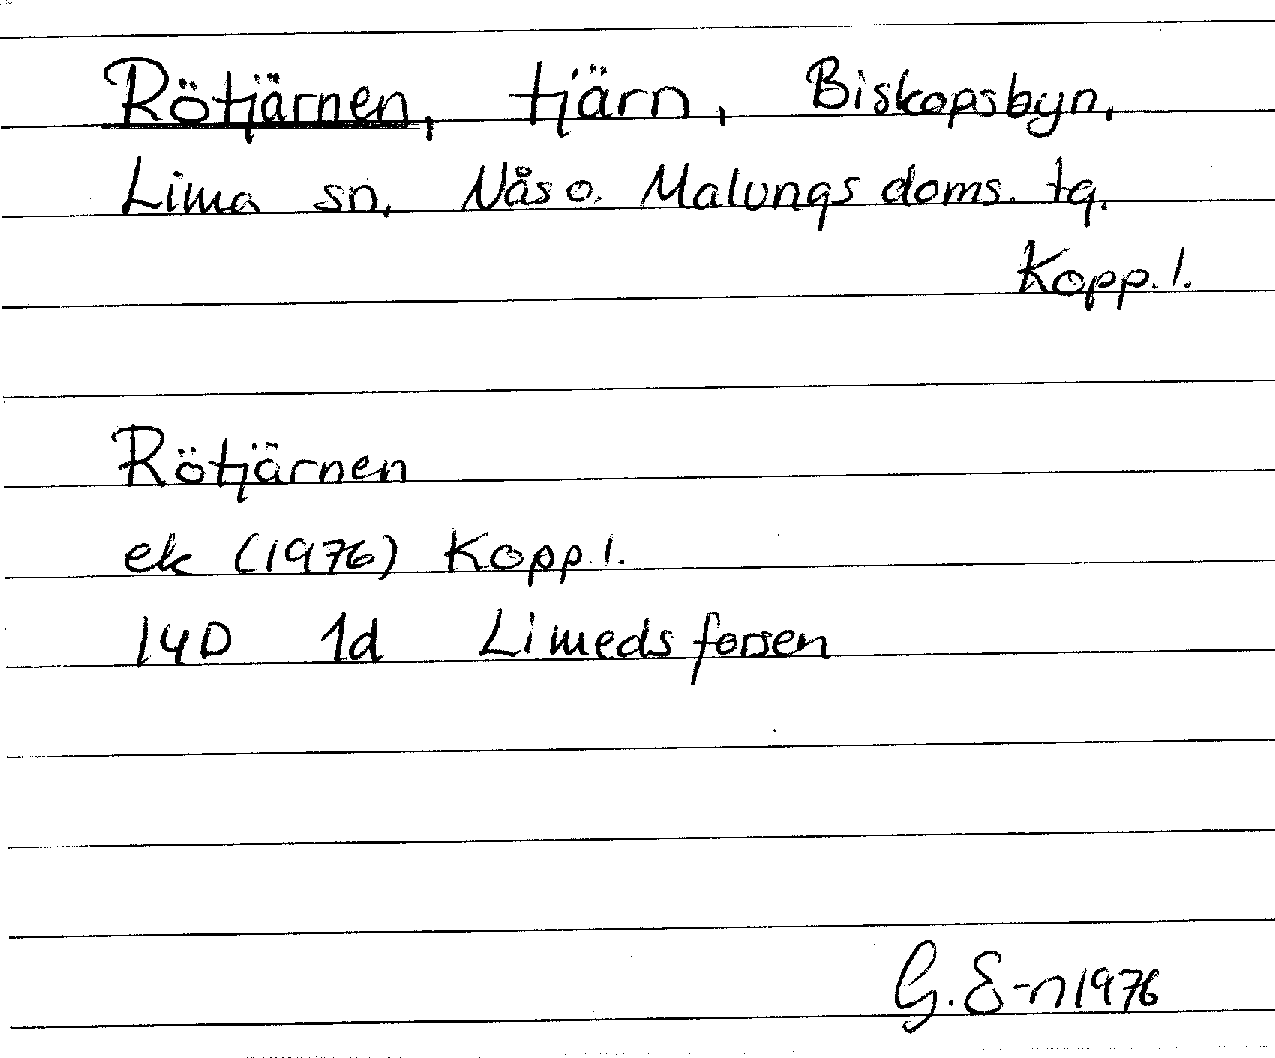 Rötjärnen, tjärn, Biskopsbyn,
Lima sn, Nås o. Malungs doms. tg.
Kopp. l.
Rötjärnen
ek (1976) Kopp l.
14D 1d Limedsforsen
G. E-n 1976